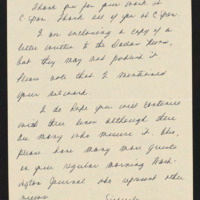 Thank you for your work at
C-Span. Thank all of you at C-Span.
I am enclosing a copy of a
letter written to the Dallas News,
but they may not publish it.
Please note that I mentioned
your network.
I do hope you will continue
with these
many who it. Also,
please have many more Guests
on your regular morning Wash-
ington Journal who represent other
Sincerely